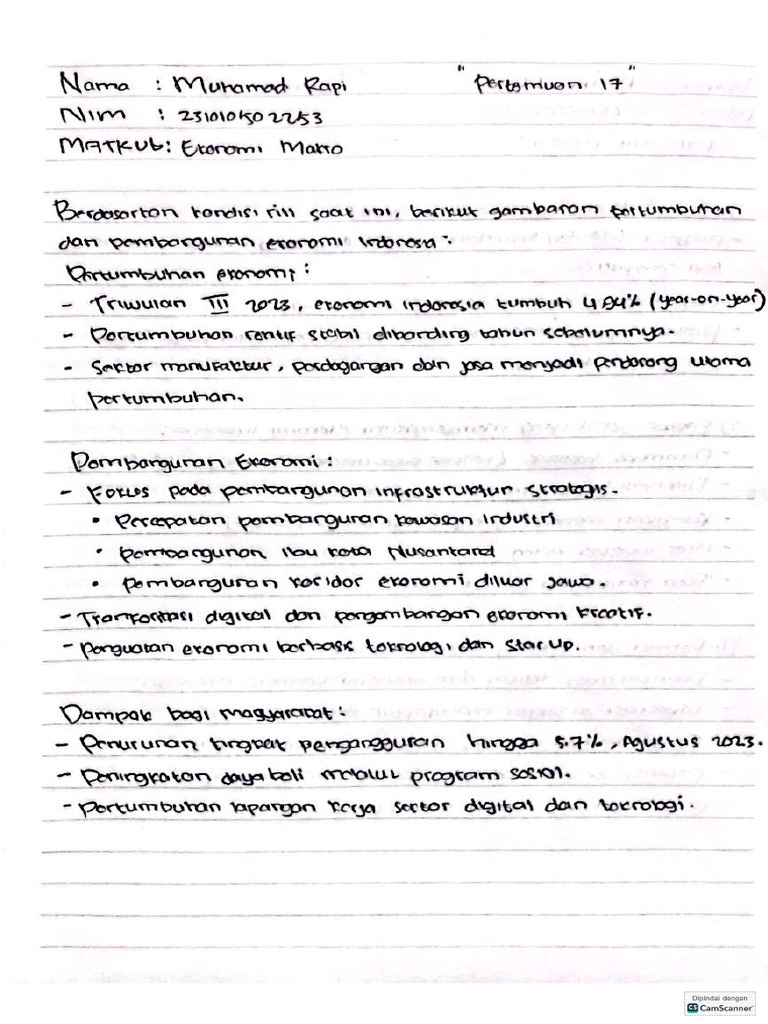 Nama : Muhamad Rapi "Pertemuan 17"
NIM : 231010502253
MATKUL : Ekonomi Makro
Berdasarkan kondisi riil saat ini, berikut gambaran pertumbuhan
dan pembangunan ekonomi Indonesia :
Pertumbuhan ekonomi :
- Triwulan III 2023, ekonomi Indonesia tumbuh 4.94% (year-on-year)
- Pertumbuhan relatif stabil dibanding tahun sebelumnya.
- Sektor manufaktur, perdagangan dan jasa menjadi pendorong utama
pertumbuhan.
Pembangunan Ekonomi :
- Fokus pada pembangunan infrastruktur strategis.
• Percepatan pembangunan kawasan industri
• pembangunan Ibu kota Nusantara
• pembangunan koridor ekonomi diluar jawa.
- Transformasi digital dan pengembangan ekonomi kreatif.
- Penguatan ekonomi berbasis teknologi dan Star up.
Dampak bagi masyarakat :
- Penurunan tingkat pengangguran hingga 5.7%, Agustus 2023.
- Peningkatan daya beli melalui program sosial.
- Pertumbuhan lapangan kerja sector digital dan teknologi.
Dipindai dengan
CS CamScanner